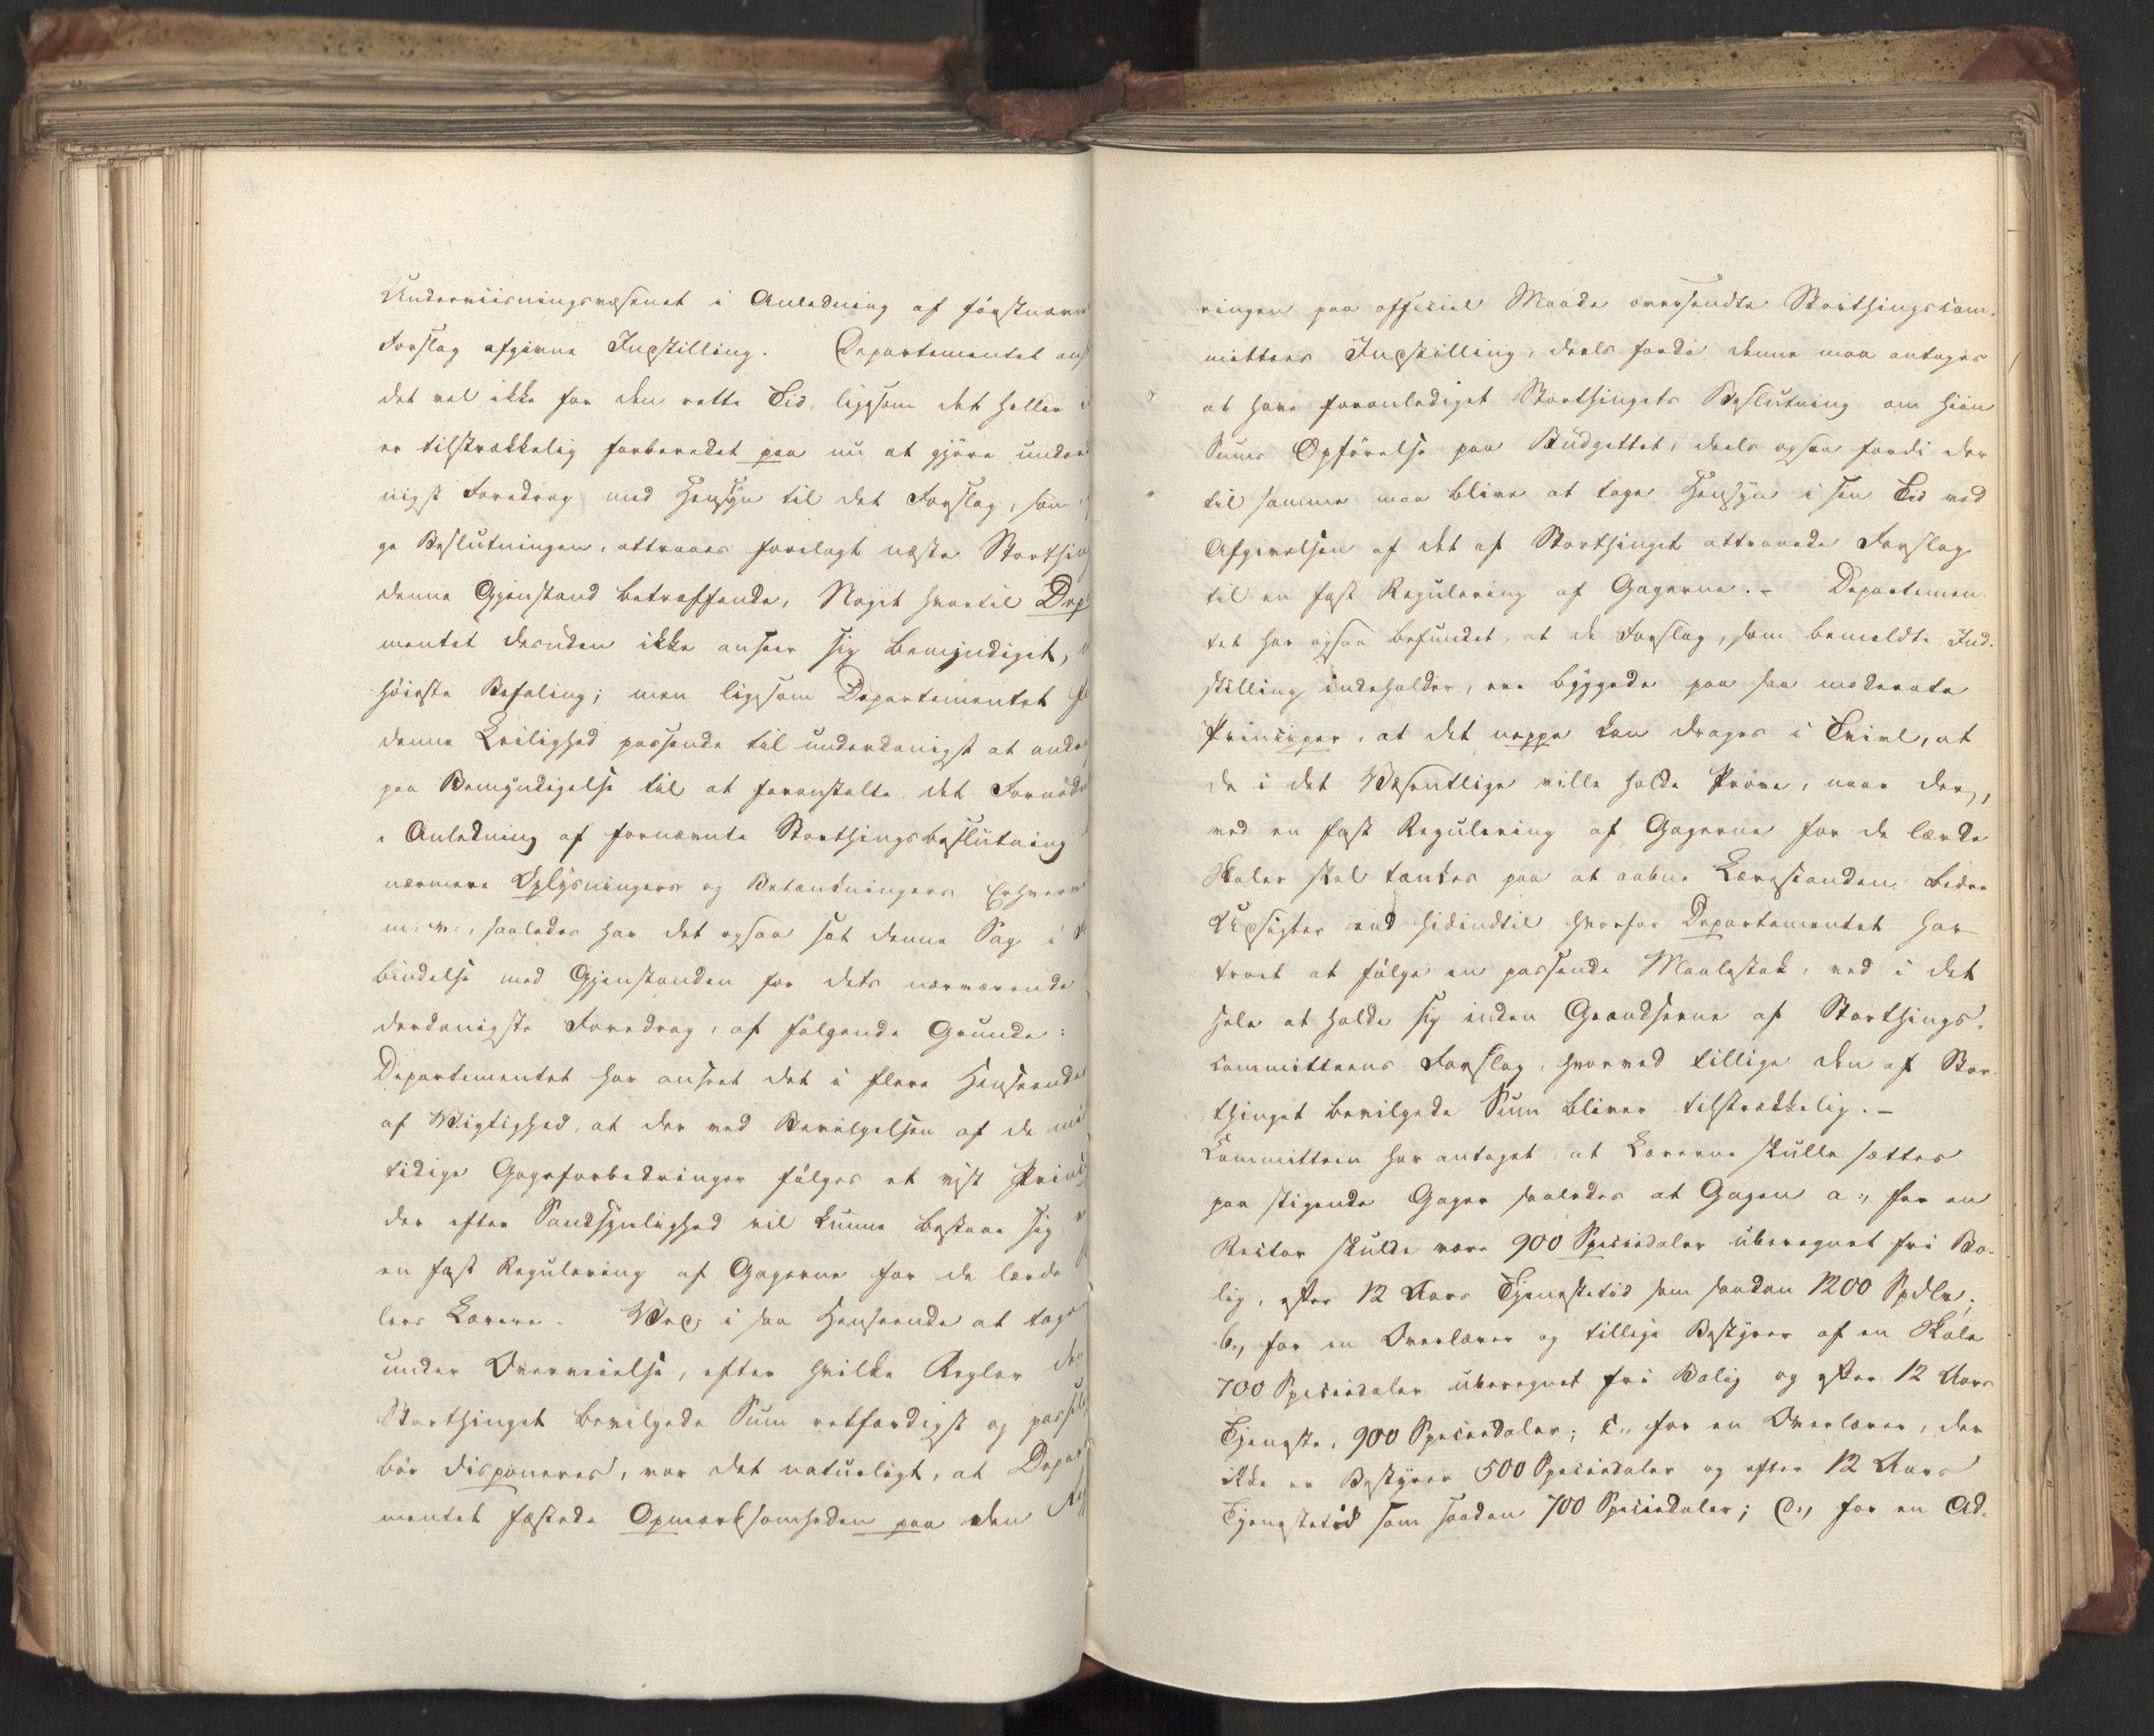 Underviisningsvæsenet i Anledning af førstnævn
Forslag afgivne Indstilling. Departementet ans
det vel ikke for den rette Tid, ligesom det heller i
er tilstrækkelig forberedet paa nu at gjøre underd
nigst Foredrag med Hensyn til det Forslag, som
ge Beslutningen, attraaes forelagt næste Storthing
denne Gjenstand betræffende, Noget hvortil Dep
mentet desuden ikke anseer sig bemyndiget,
høieste Befaling; men ligesom Departementet
denne Leilighed passende til underdanigst at andr
paa Bemyndigelse til at foranstalte det Fornødn
i Anledning af fornævnte Storthingsbeslutning
nærmere Oplysningers og Betænkningers Erhverv
m: v:, saaledes har det ogsaa sat denne Sag i F
bindelse med Gjenstanden for dets nærværende
derdanigste Foredrag, af følgende Grunde:
Departementet har anseet det i flere Henseender
af Vigtighed, at der ved Bevilgelsen af de mid
tidige Gageforbedringer følges et vist Princ
der efter Sandsynlighed vil kunne bestaae sig
en fast Regulering af Gagerne for de lærde
lers Lærere. Ved i saa Henseende at tage
under Overveielse, efter hvilke Regler den
Storthinget bevilgede Sum retfærdigst og passel
bør disponeres, var det naturligt, at Depar
mentet fæstede Opmærksomheden paa den
ringen paa officiel Maade oversendte Storthingscom-
mittees Indstilling, deels fordi denne maa antages
at have foranlediget Storthingets Beslutning om hiin
Sums Opførelse paa Budgettet, deels ogsaa fordi der
til samme maa blive at tage Hensyn i sin Tid ved
Afgivelsen af det af Storthinget attraaede Forslag
til en fast Regulering af Gagerne. – Departemen-
tet har ogsaa befundet, at de Forslag, som bemeldte Ind-
stilling indeholder, ere byggede paa saa moderate
Principer, at det neppe kan drages i Tvivl, at
de i det Væsentlige ville holde Prøve, naar der,
ved en fast Regulering af Gagerne for de lærde
Skoler skal tænkes paa at aabne Lærestanden bedre
Udsigter end hidindtil hvorfor Departementet har
troet at følge en passende Maalestok, ved i det
Hele at holde sig inden Grændserne af Storthings-
committeens Forslag, hvorved tillige den af Stor-
thinget bevilgede Sum bliver tilstrækkelig. –
Committeen har antaget, at Lærerne skulle sættes
paa stigende Gager saaledes at Gagen a., for en
Rector skulde være 900 Speciedaler uberegnet fri Bo-
lig, efter 12 Aars Tjenestetid som saadan 1200 Spdlr;
b., for en Overlærer og tillige Bestyrer af en Skole
700 Speciedaler uberegnet fri Bolig og efter 12 Aars
Tjeneste, 900 Speciedaler; c., for en Overlærer, der
ikke er Bestyrer 500 Speciedaler og efter 12 Aars
Tjenestetid som saadan 700 Speciedaler; d., for en Ad-